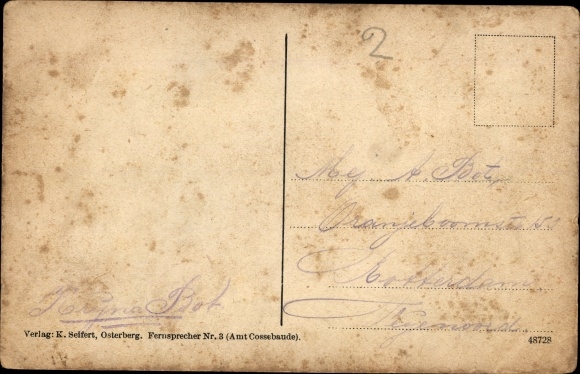 2
Mej A. Bot
Oranjeboomst
Rotterdam
Bot
Verlag: K. Seifert, Osterberg. Fernsprecher Nr. 3 (Amt Cossebaude).
48728